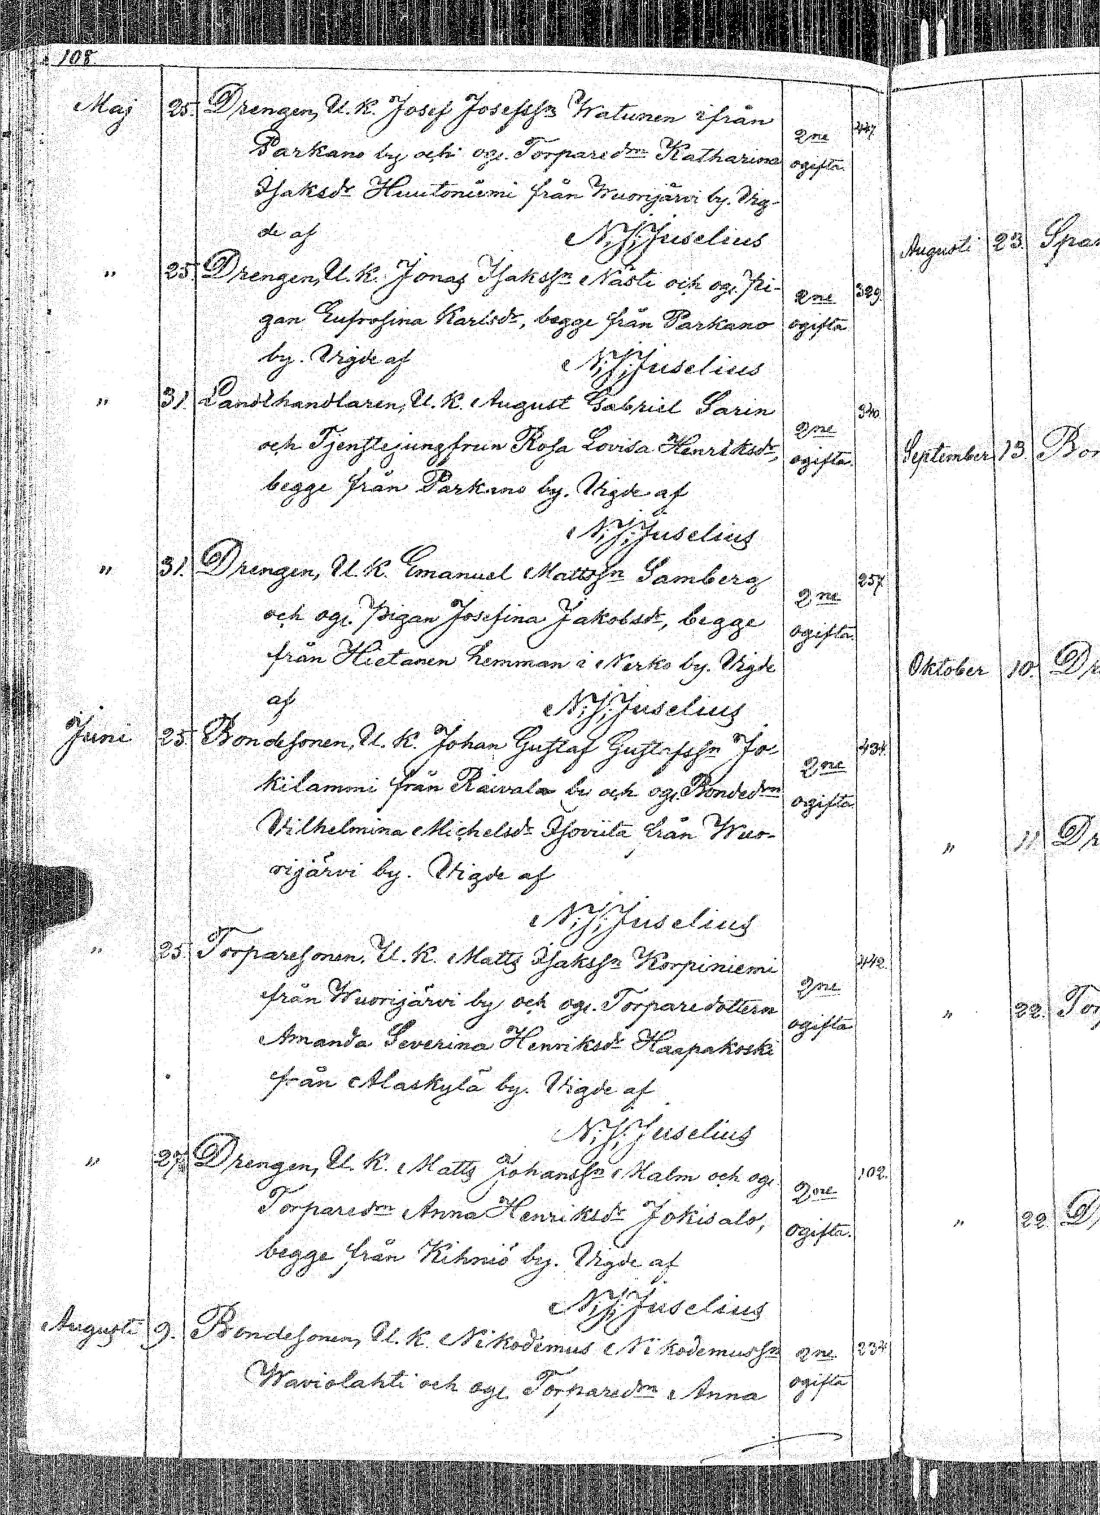 108.
Maj 25. Drengen, U. K. Josef Josefssn Watunen ifrån
Parkano by och og. Torparedrn Katharina 2ne 447.
Isaksdr Huutoniemi från Wuorijärvi by. Vig- ogifta.
de af N. J. Juselius
" 25. Drengen, U. K. Jonas Isakssn Nästi och og. Pi- 2ne 329.
gan Eufrosina Karlsdr, begge från Parkano ogifta
by. Vigde af N. J. Juselius
" 31. Landthandlaren, U. K. August Gabriel Sarin 2ne 340.
och Tjenstejungfrun Rosa Lovisa Henriksdr, ogifta.
begge från Parkano by. Vigde af
N. J. Juselius
" 31. Drengen, U. K. Emanuel Mattssn Samberg 2ne 257.
och og. Pigan Josefina Jakobsdr, begge ogifta.
från Hietanen hemman i Nerko by. Vigde
af N. J. Juselius
Juni 25. Bondesonen, U. K. Johan Gustaf Gustafssn Jo- 2ne 434.
kilammi från Raivala by och og. Bondedrn ogifta
Vilhelmina Michelsdr Isoviita från Wuo-
rijärvi by. Vigde af
N. J. Juselius
" 25. Torparesonen, U. K. Matts Isakssn Korpiniemi 2ne 442.
från Wuorijärvi by och og. Torparedottern ogifta
Amanda Severina Henriksdr Haapakoski
från Alaskylä by. Vigde af
N. J. Juselius
" 27. Drengen, U. K. Matts Johanssn Malm och og. 2ne 102.
Torparedrn Anna Henriksdr Jokisalo, ogifta.
begge från Kihniö by. Vigde af
N. J. Juselius
Augusti 9. Bondesonen, U. K. Nikodemus Nikodemussn 2ne 234
Waviolahti och og. Torparedrn Anna ogifta
Augusti 23.
September 13.
Oktober 10.
" 11.
" 22.
" 22.